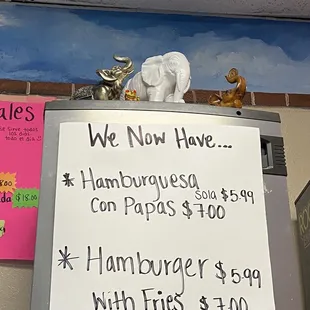 We Now Have...
* Hamburguesa
Sola $5.99
Con Papas $7.00
* Hamburger $5.99
With Fries $7.00
ales
todo el dia
$18.00